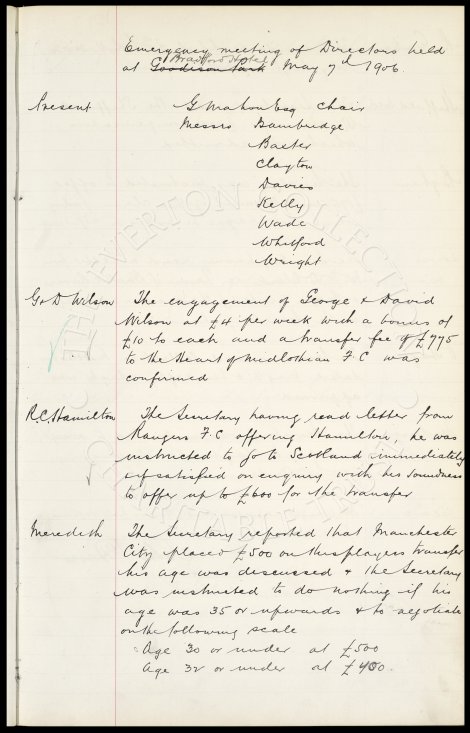 Emergency meeting of Directors held
Bradford Hotel
at Goodison Park May 7th 1906.
Present G Mahon Esq Chair
Messrs Bainbridge
Baxter
Clayton
Davies
Kelly
Wade
Whitford
Wright
G & D Wilson The engagement of George & David
Wilson at £4 per week with a bonus of
£10 to each and a transfer fee of £775
to the Heart of Midlothian F.C was
confirmed
R.C. Hamilton The Secretary having read letter from
Rangers F.C offering Hamilton, he was
instructed to go to Scotland immediately
& if satisfied on enquiry with his soundness
to offer up to £600 for the transfer
Meredith The Secretary reported that Manchester
City placed £500 on this players transfer
his age was discussed & the Secretary
was instructed to do nothing if his
age was 35 or upwards & to negotiate
on the following scale
Age 30 or under at £500
Age 32 or under at £450.
THE EVERTON COLLECTION
CHARITABLE TRUST